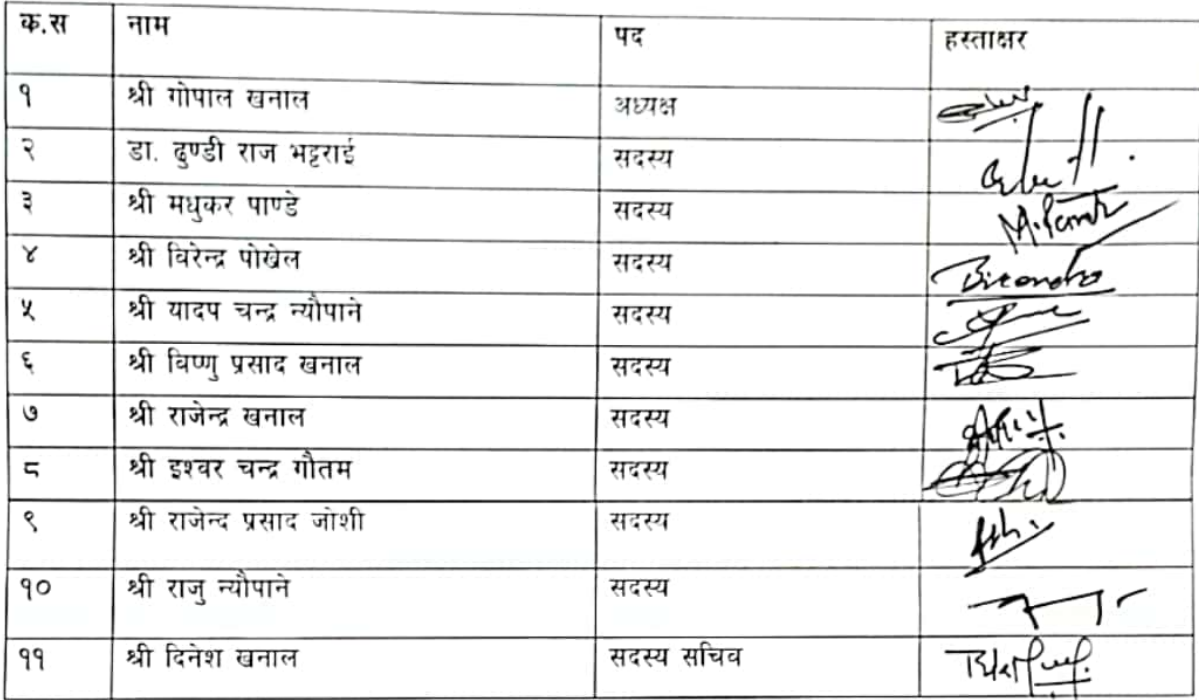 क.स नाम पद हस्ताक्षर
१ श्री गोपाल खनाल अध्यक्ष
२ डा. ढुण्डी राज भट्टराई सदस्य
३ श्री मधुकर पाण्डे सदस्य
४ श्री विरेन्द्र पोखेल सदस्य Birendra
५ श्री यादप चन्द्र न्यौपाने सदस्य
६ श्री विष्णु प्रसाद खनाल सदस्य
७ श्री राजेन्द्र खनाल सदस्य
८ श्री इश्वर चन्द्र गौतम सदस्य
९ श्री राजेन्द प्रसाद जोशी सदस्य
१० श्री राजु न्यौपाने सदस्य
११ श्री दिनेश खनाल सदस्य सचिव